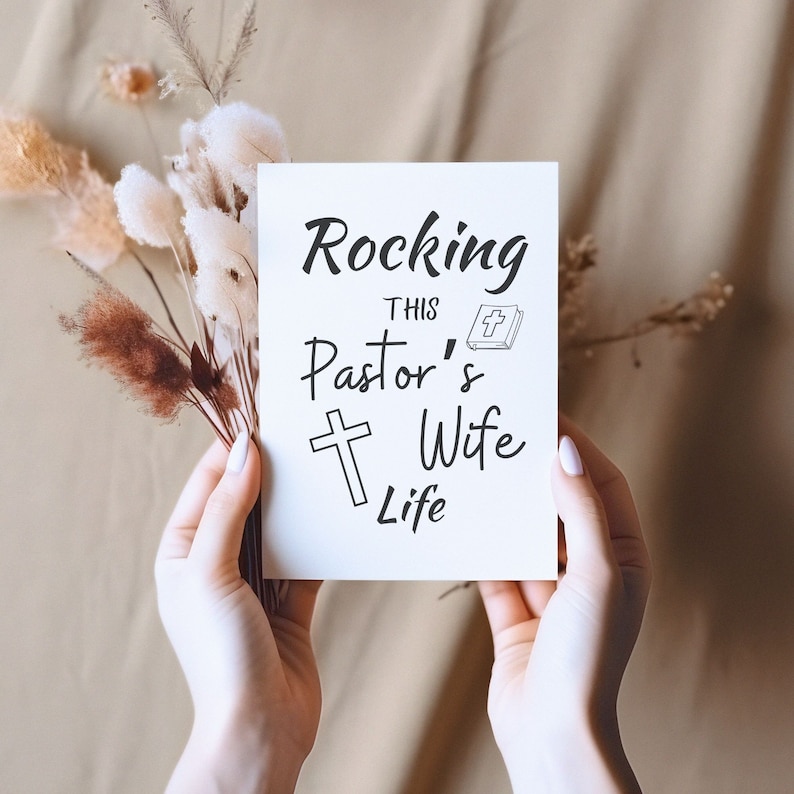 Rocking
THIS
Pastor's
Wife
Life